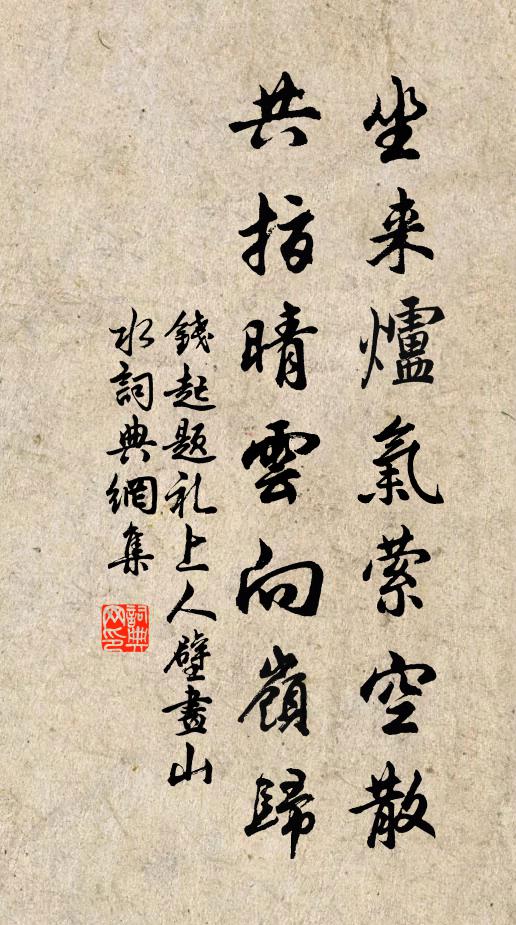 坐来爐氣縈空散
共指晴雲向嶺歸
錢起題礼上人壁畫山
水詞典網集
詞典网印